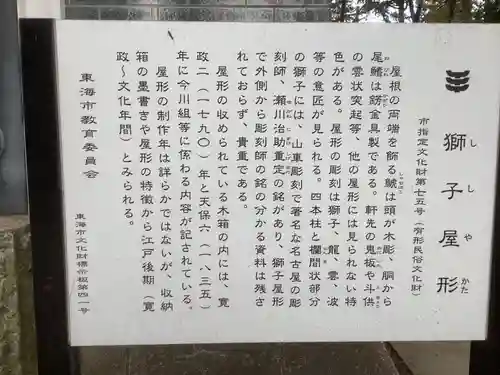 獅子屋形
しし やかた
市指定文化財第七五号(有形民俗文化財)
屋根の両端を飾る鯱は頭が木彫、胴から
尾鰭は錺金具製である。軒先の鬼板や斗供
の雲状突起等、他の屋形には見られない特
色がある。屋形の彫刻は獅子、龍、雲、波
等の意匠が見られる。四本柱と欄間状部分
の獅子には、山車彫刻で著名な名古屋の彫
刻師、瀬川治助重定の銘があり、獅子屋形
で外側から彫刻師の銘の分かる資料は残さ
れておらず、貴重である。
屋形の収められている木箱の内には、寛
政二(一七九〇)年と天保六(一八三五)
年に今川組等に係わる内容が記されている。
屋形の制作年は詳らかではないが、収納
箱の墨書きや屋形の特徴から江戸後期(寛
政~文化年間)とみられる。
東海市教育委員会
東海市文化財標示板第四一号